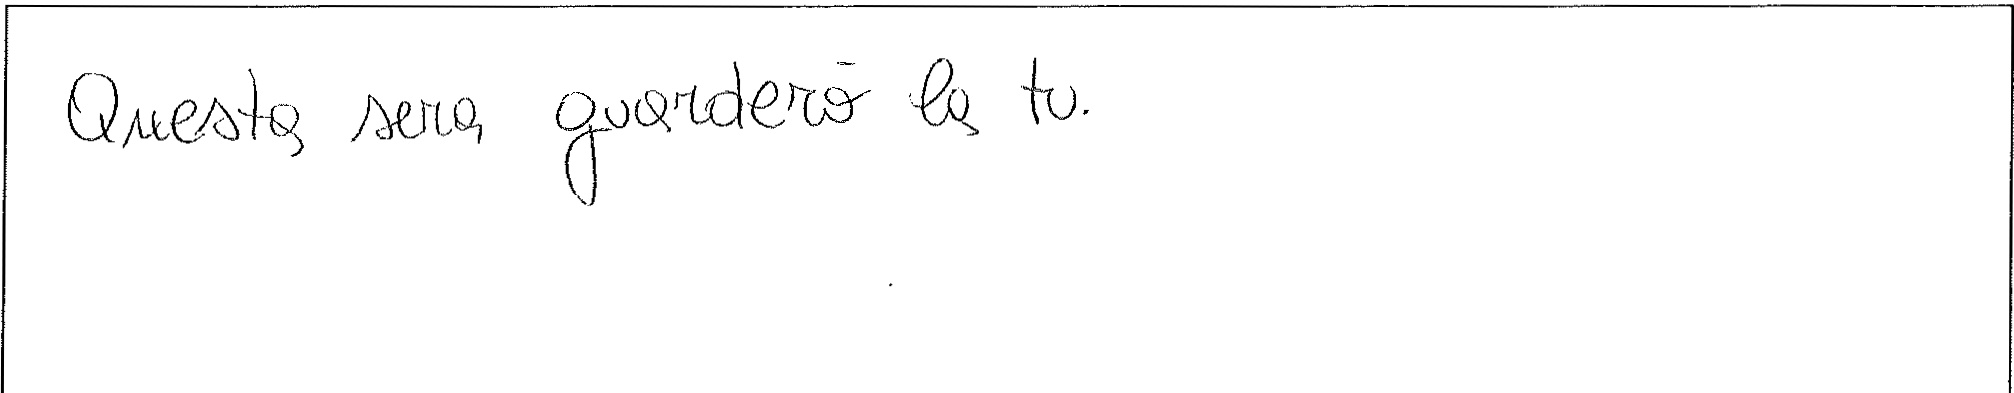 Questa sera guarderò la tv.